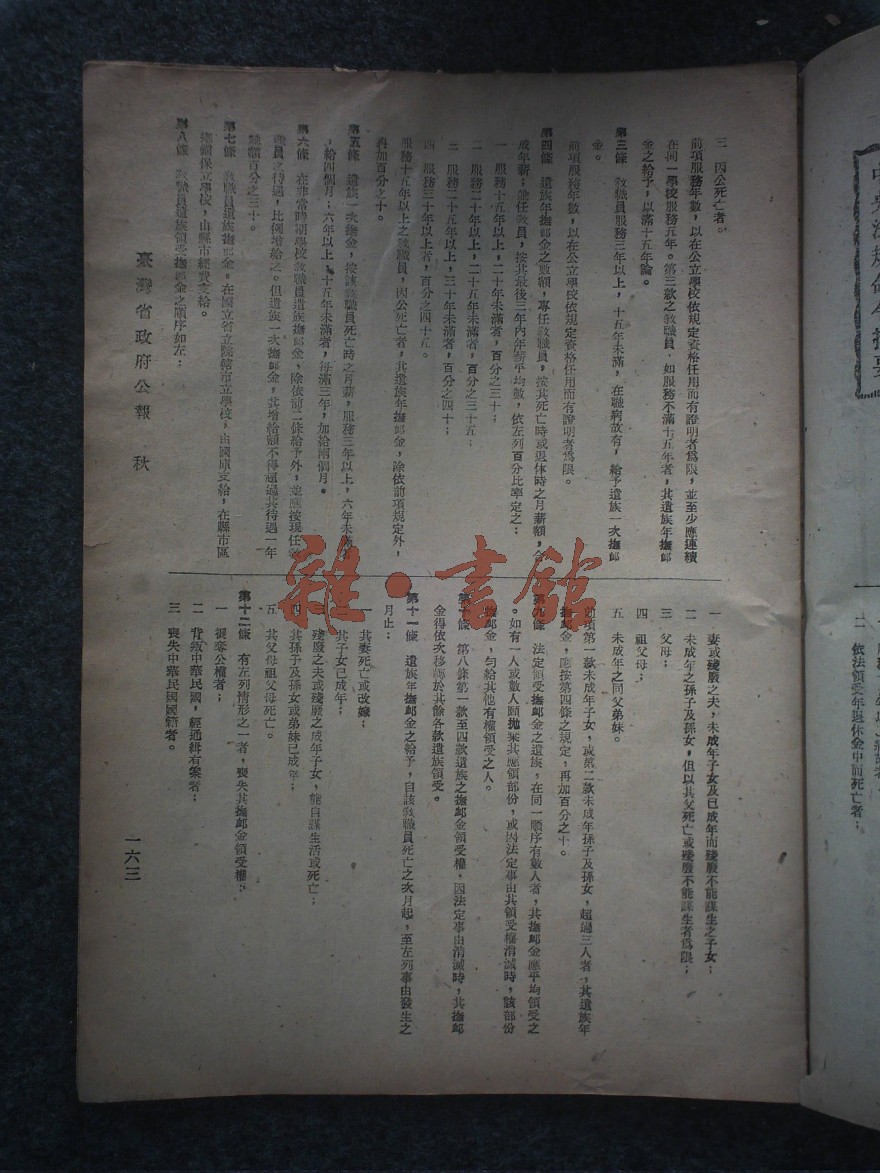 三　因公死亡者。
前項服務年數，以在公立學校依規定資格任用而有證明者爲限，並至少應連續
在同一學校服務五年。第三款之敎職員，如服務不滿十五年者，其遺族年撫卹
金之給予，以滿十五年論。
第三條　敎職員服務三年以上，十五年未滿，在職病故者，給予遺族一次撫卹
金。
前項服務年數，以在公立學校依規定資格任用而有證明者爲限。
第四條　遺族年撫卹金之數額，專任敎職員，按其死亡時或退休時之月薪額，合
成年薪；兼任敎員，按其最後三年內年薪平均數，依左列百分比率定之：
一　服務十五年以上，二十年未滿者，百分之三十；
二　服務二十年以上，二十五年未滿者，百分之三十五；
三　服務二十五年以上，三十年未滿者，百分之四十；
四　服務三十年以上者，百分之四十五。
服務十五年以上之敎職員，因公死亡者，其遺族年撫卹金，除依前項規定外，
再加百分之十。
第五條　遺族一次撫卹金，按該敎職員死亡時之月薪，服務三年以上，六年未滿者
，給四個月；六年以上，十五年未滿者，每滿三年，加給兩個月。
第六條　在非常時期學校敎職員遺族撫卹金，除依前二條給予外，並應按現任
職員之待遇，比例增給之。但遺族一次撫卹金，其增給額不得超過其待遇一年
總額百分之三十。
第七條　敎職員遺族撫卹金。在國立省立院轄市立學校，由國庫支給，在縣市區
鄉鎮保立學校，由縣市經費支給。
第八條　敎職員遺族領受撫卹金之順序如左：
臺灣省政府公報　秋
一　妻或殘廢之夫，未成年子女及已成年而殘廢不能謀生之子女；
二　未成年之孫子及孫女，但以其父死亡或殘廢不能謀生者爲限；
三　父母；
四　祖父母；
五　未成年之同父弟妹。
前項第一款未成年子女，或第二款未成年孫子及孫女，超過三人者，其遺族年
撫卹金，應按第四條之規定，再加百分之十。
第九條　法定領受撫卹金之遺族，在同一順序有數人者，其撫卹金應平均領受之
。如有一人或數人願拋棄其應領部份，或因法定事由其領受權消滅時，該部份
撫卹金，勻給其他有權領受之人。
第十條　第八條第一款至四款遺族之撫卹金領受權，因法定事由消滅時，其撫卹
金得依次移轉於其餘各款遺族領受。
第十一條　遺族年撫卹金之給予，自該敎職員死亡之次月起，至左列事由發生之
月止：
一　其妻死亡或改嫁；
二　其子女已成年；
三　殘廢之夫或殘廢之成年子女，能自謀生活或死亡；
四　其孫子及孫女或弟妹已成年；
五　其父母祖父母死亡。
第十二條　有左列情形之一者，喪失其撫卹金領受權：
一　褫奪公權者；
二　背叛中華民國，經通緝有案者；
三　喪失中華民國國籍者。
一六三
二　依法領受年退休金中而死亡者；
雜·書館